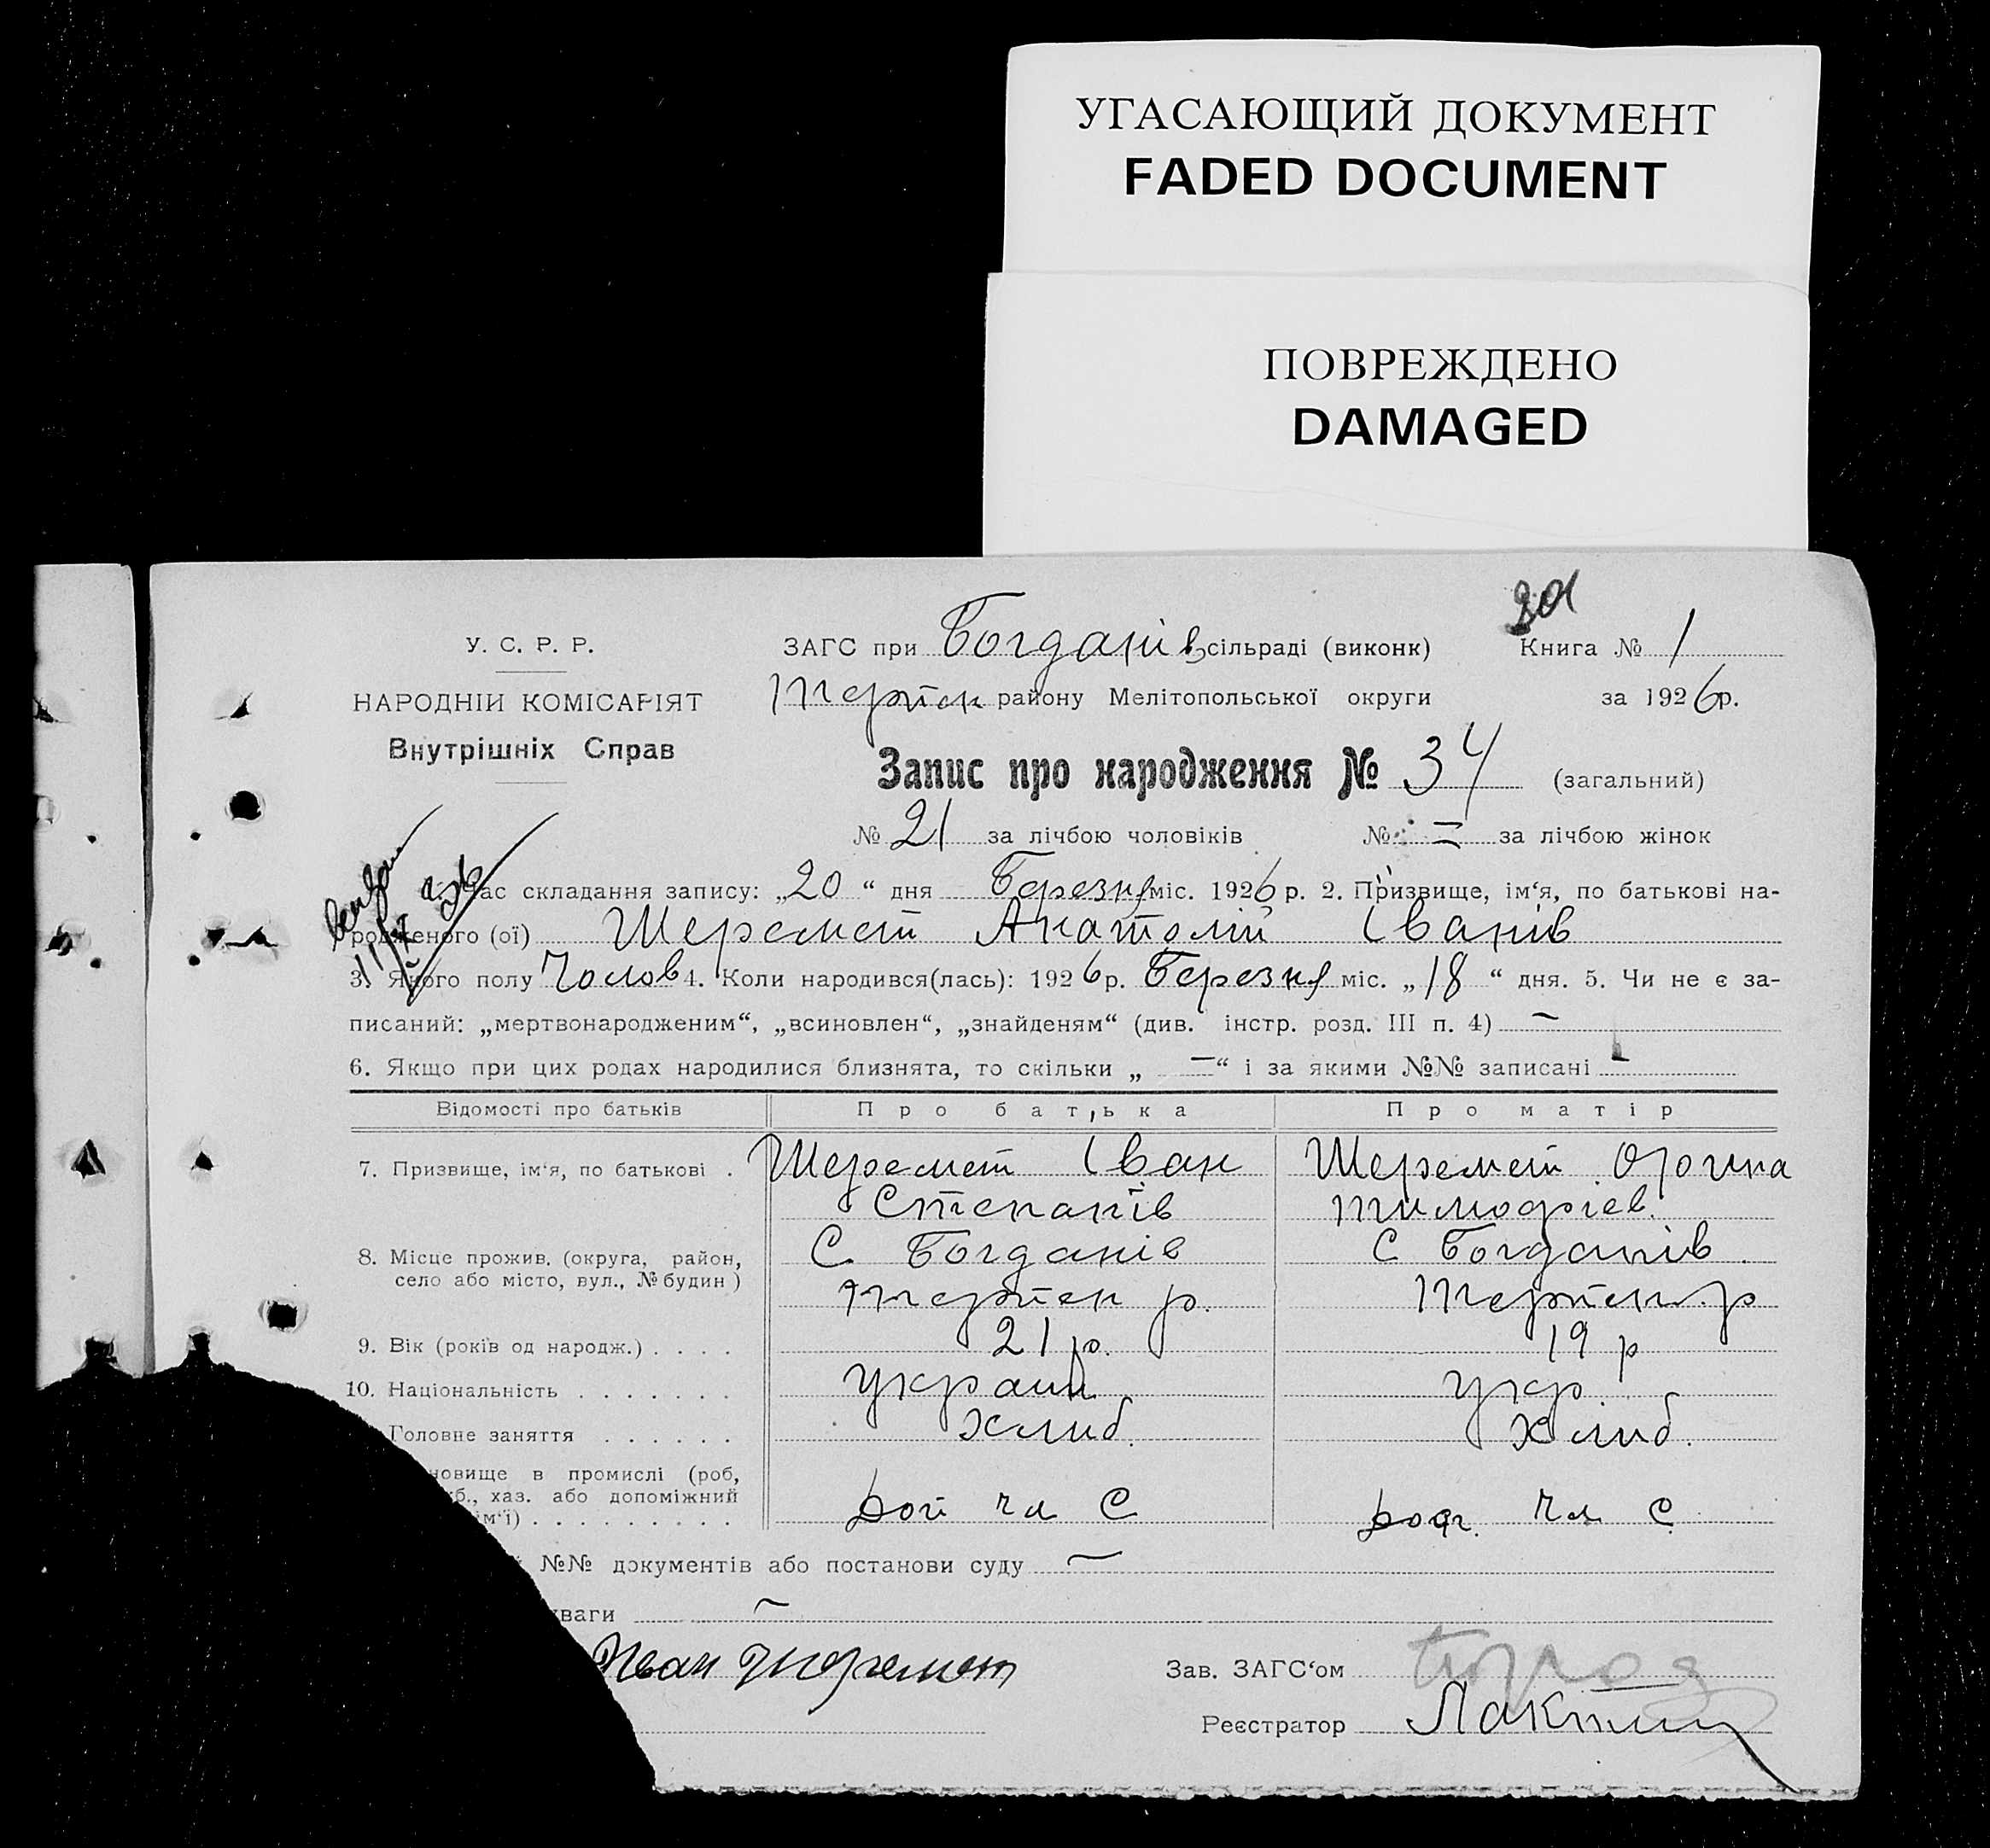 УГАСАЮЩИЙ ДОКУМЕНТ
FADED DOCUMENT
ПОВРЕЖДЕНО
DAMAGED
У. С. Р. Р.
НАРОДНІЙ КОМІСАРІЯТ
Внутрішніх Справ
ЗАГС при Богданів сільраді (виконк)
Книга № 1
Терпен району Мелітопольської округи
за 1926 р.
Запис про народження № 34 (загальний)
№ 21 за лічбою чоловіків № — за лічбою жінок
Час складання запису: „20“ дня Березня міс. 1926 р. 2. Призвище, ім‘я, по батькові на-
родженого (ої) Шеремет Анатолій Іванів
3. Якого полу Чолов 4. Коли народився(лась): 1926 р. Березня міс. „18“ дня. 5. Чи не є за-
писаний: „мертвонародженим“, „всиновлен“, „знайденям“ (див. інстр. розд. III п. 4) —
6. Якщо при цих родах народилися близнята, то скільки „—“ і за якими №№ записані —
Відомості про батьків Про батька Про матір
7. Призвище, ім‘я, по батькові . Шеремет Іван Шеремет Орина
Степанів Тимофіев.
8. Місце прожив. (округа, район, С. Богданів С Богданів
село або місто, вул., № будин) Терпен р. Терпен. р
9. Вік (років од народж.) . . . . 21 р. 19 р
10. Національність . . . . . . . україн укр.
Головне заняття . . . . . . хлиб. хлиб.
новище в промислі (роб,
б., хаз. або допоміжний
ім‘ї) . . . . . . . . . чл С чл С
№№ документів або постанови суду —
ваги —
Иван Шеремет
Зав. ЗАГС‘ом
Реєстратор